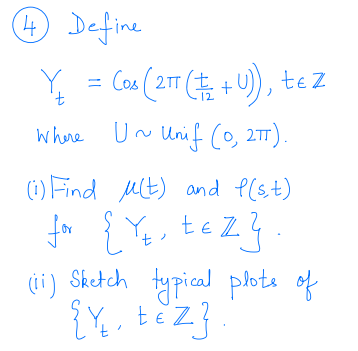 ④ Define
Y_t = Cos(2π(t/12 + U)), t ∈ ℤ
where U ~ Unif(0, 2π).
(i) Find μ(t) and ρ(s,t)
for {Y_t, t ∈ ℤ}.
(ii) Sketch typical plots of
{Y_t, t ∈ ℤ}.